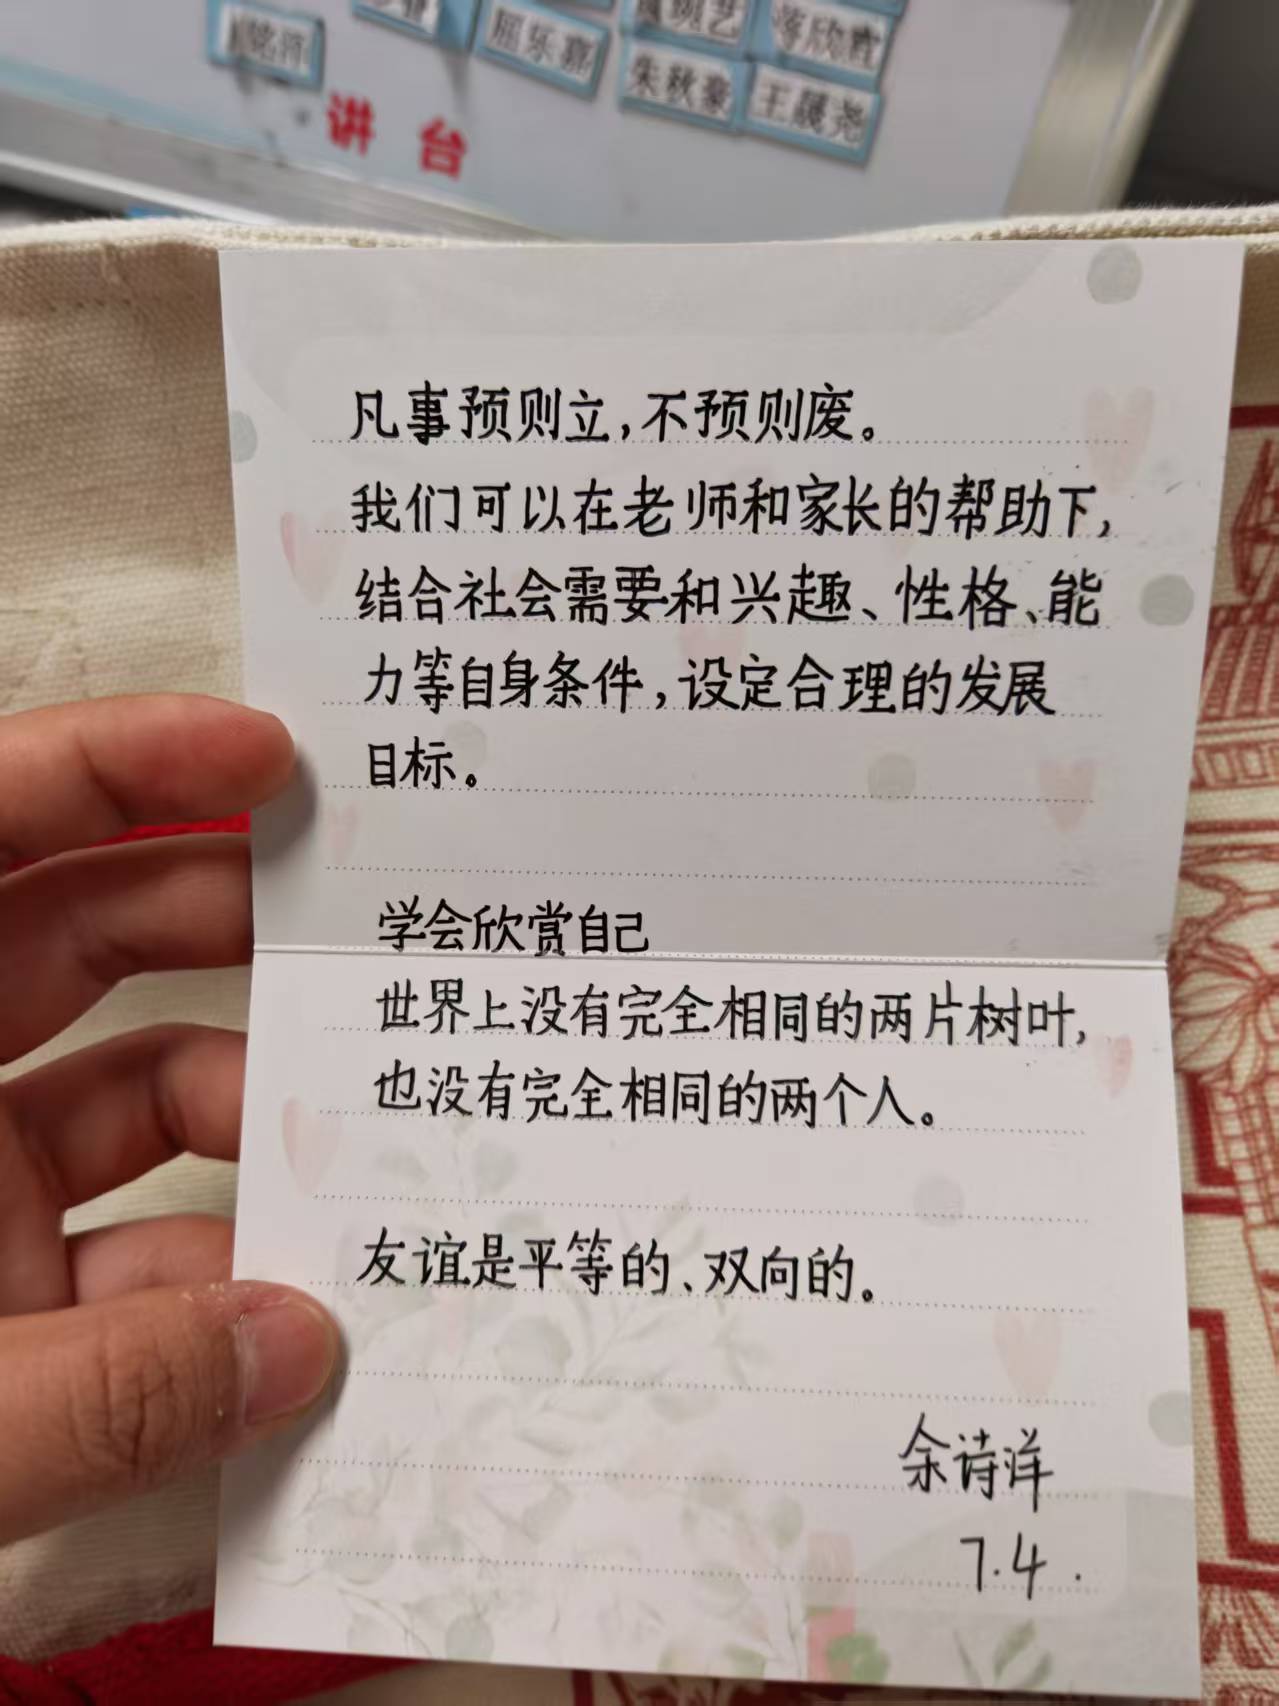 屈乐嘉
朱秋豪
王晨尧
讲台
凡事预则立,不预则废。
我们可以在老师和家长的帮助下,
结合社会需要和兴趣、性格、能
力等自身条件,设定合理的发展
目标。
学会欣赏自己
世界上没有完全相同的两片树叶,
也没有完全相同的两个人。
友谊是平等的、双向的。
余诗洋
7.4.